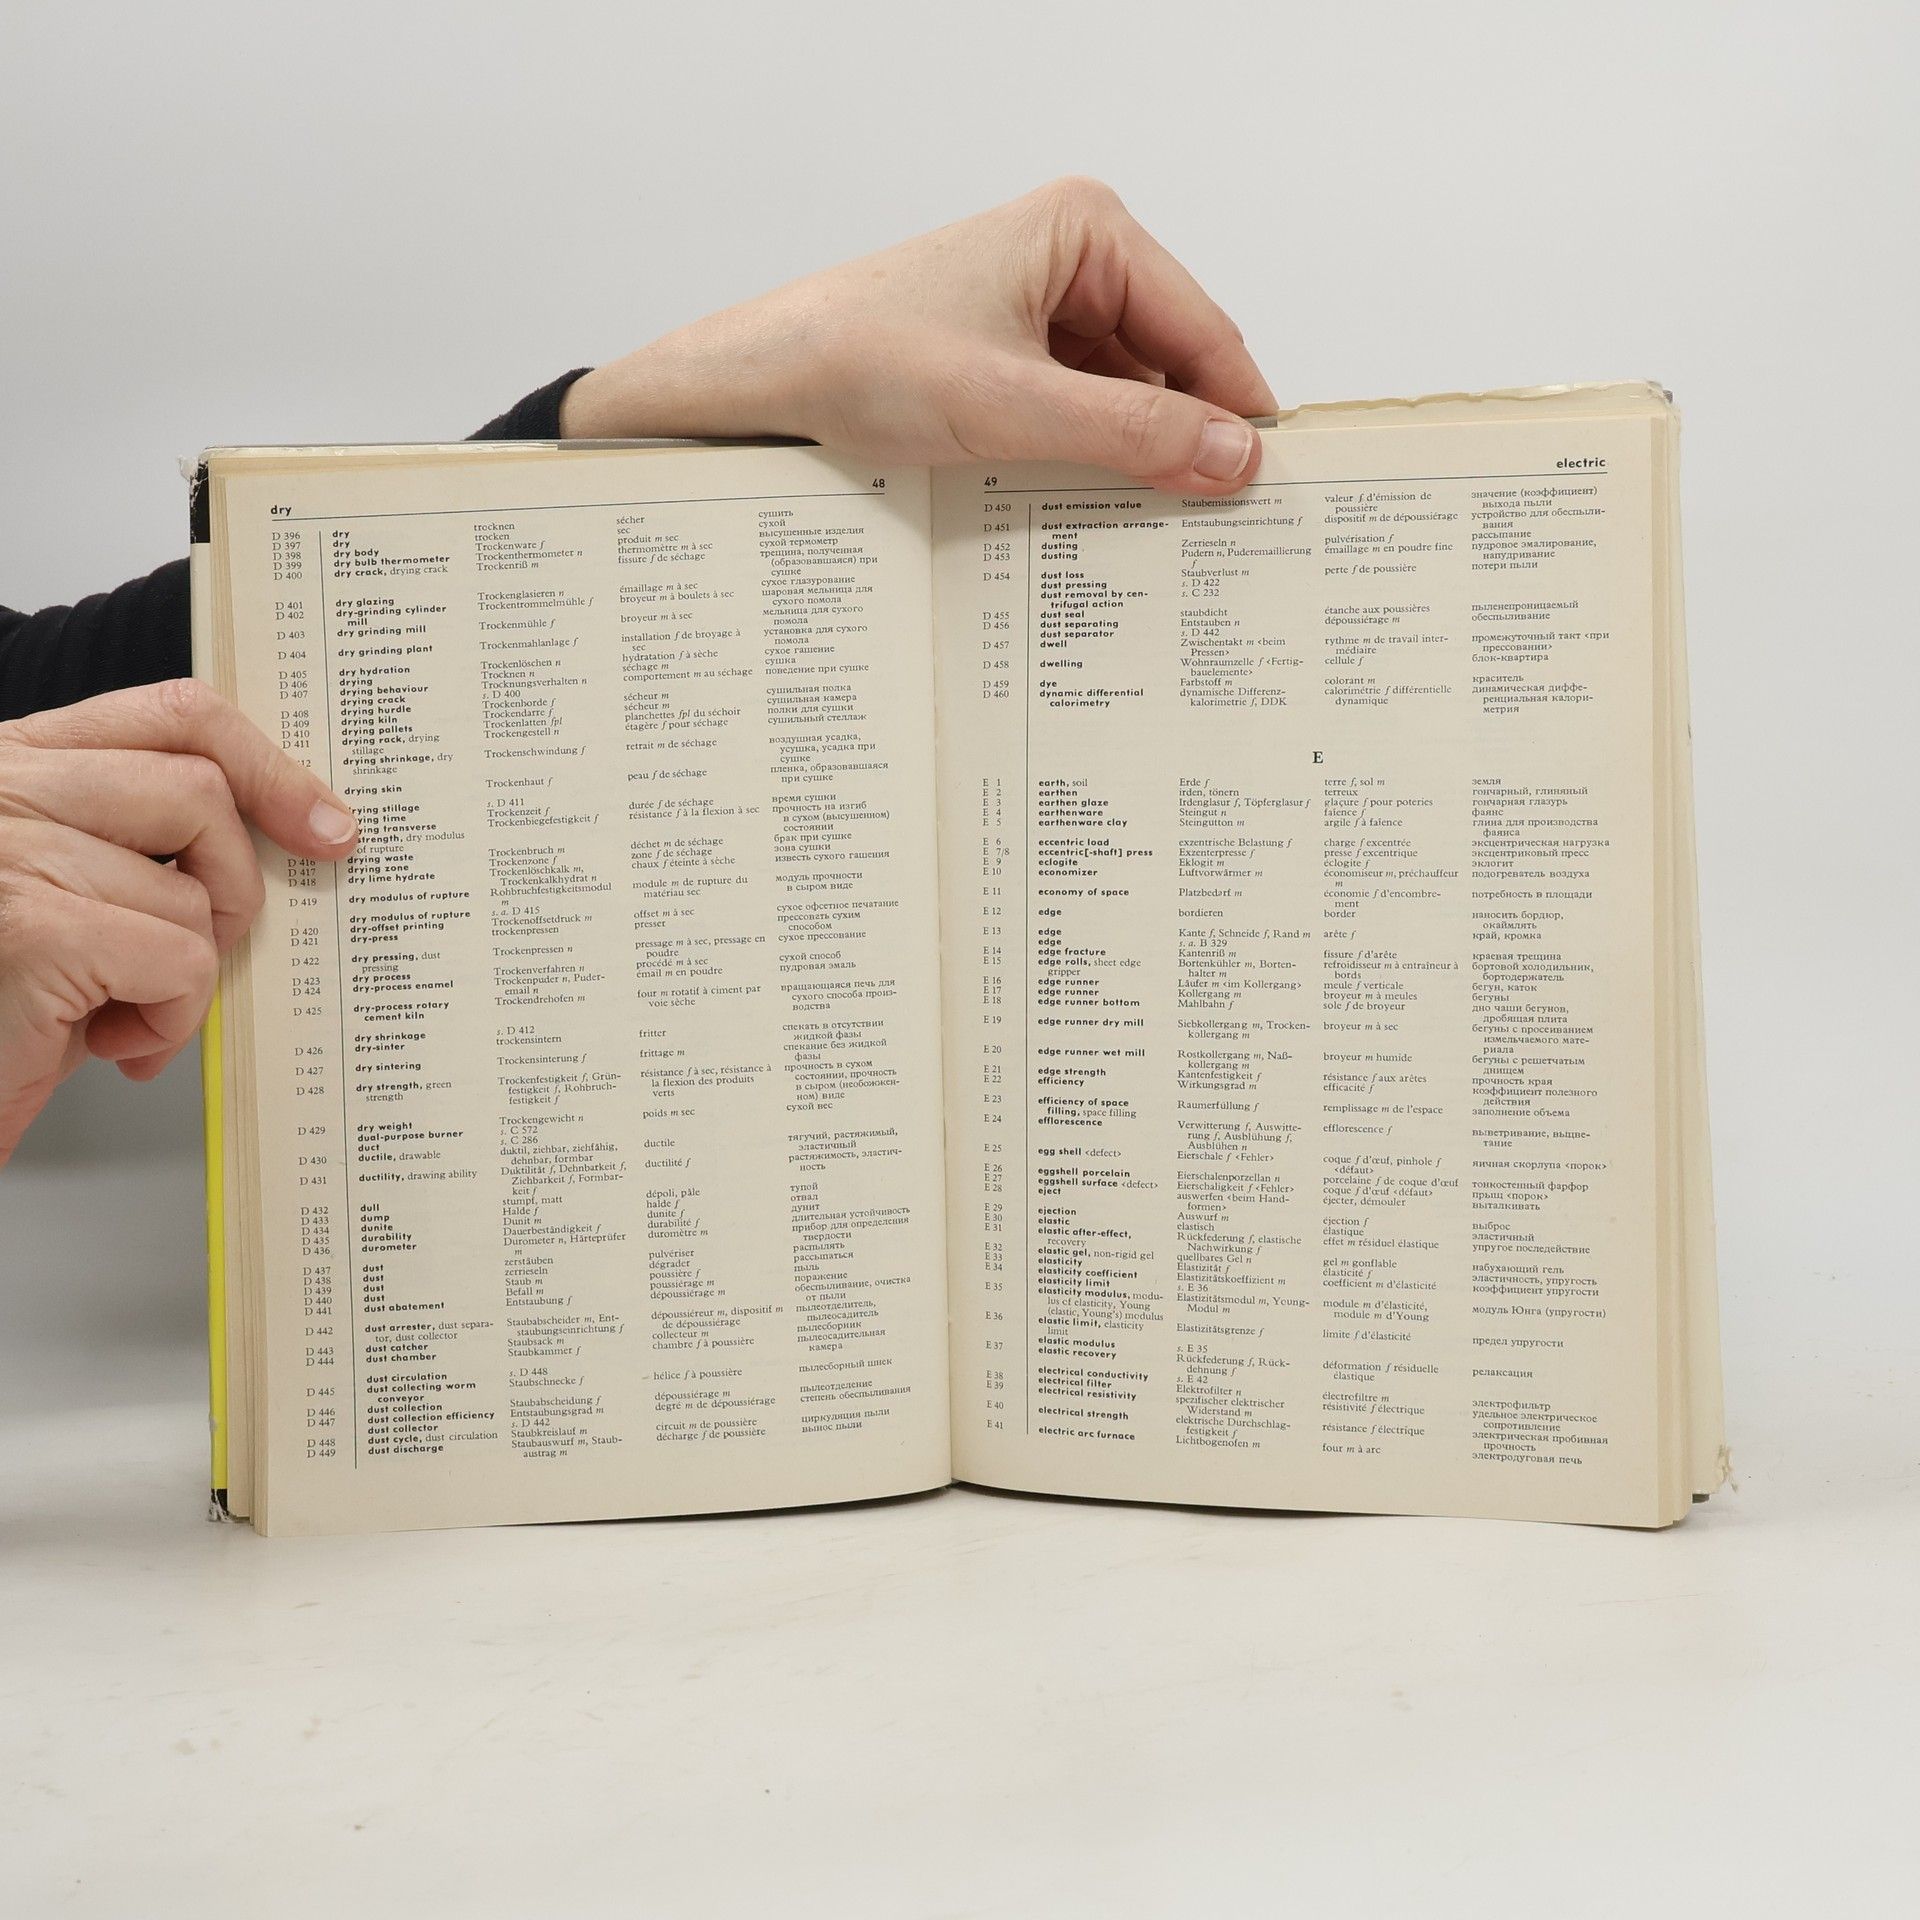 dry 48
D 396 dry trocknen sécher сушить
D 397 dry trocken sec сухой
D 398 dry body Trockenware f produit m sec высушенные изделия
D 399 dry bulb thermometer Trockenthermometer n thermomètre m à sec сухой термометр
D 400 dry crack, drying crack Trockenriß m fissure f de séchage трещина, полученная
(образовавшаяся) при
сушке
D 401 dry glazing Trockenglasieren n émaillage m à sec сухое глазурование
D 402 dry-grinding cylinder Trockentrommelmühle f broyeur m à boulets à sec шаровая мельница для
mill сухого помола
D 403 dry grinding mill Trockenmühle f broyeur m à sec мельница для сухого
помола
D 404 dry grinding plant Trockenmahlanlage f installation f de broyage à установка для сухого
sec помола
D 405 dry hydration Trockenlöschen n hydratation f à sèche сухое гашение
D 406 drying Trocknen n séchage m сушка
D 407 drying behaviour Trocknungsverhalten n comportement m au séchage поведение при сушке
drying crack s. D 400
D 408 drying hurdle Trockenhorde f sécheur m сушильная полка
D 409 drying kiln Trockendarre f sécheur m сушильная камера
D 410 drying pallets Trockenlatten fpl planchettes fpl du séchoir полки для сушки
D 411 drying rack, drying Trockengestell n étagère f pour séchage сушильный стеллаж
stillage
12 drying shrinkage, dry Trockenschwindung f retrait m de séchage воздушная усадка,
shrinkage усушка, усадка при
сушке
drying skin Trockenhaut f peau f de séchage пленка, образовавшаяся
при сушке
rying stillage s. D 411
ying time Trockenzeit f durée f de séchage время сушки
ying transverse Trockenbiegefestigkeit f résistance f à la flexion à sec прочность на изгиб
strength, dry modulus в сухом (высушенном)
of rupture состоянии
D 416 drying waste Trockenbruch m déchet m de séchage брак при сушке
D 417 drying zone Trockenzone f zone f de séchage зона сушки
D 418 dry lime hydrate Trockenlöschkalk m, chaux f éteinte à sèche известь сухого гашения
Trockenkalkhydrat n
D 419 dry modulus of rupture Rohbruchfestigkeitsmodul module m de rupture du модуль прочности
m matériau sec в сыром виде
dry modulus of rupture s. a. D 415
D 420 dry-offset printing Trockenoffsetdruck m offset m à sec сухое офсетное печатание
D 421 dry-press trockenpressen presser прессовать сухим
способом
D 422 dry pressing, dust Trockenpressen n pressage m à sec, pressage en сухое прессование
pressing poudre
D 423 dry process Trockenverfahren n procédé m à sec сухой способ
D 424 dry-process enamel Trockenpuder n, Puder- émail m en poudre пудровая эмаль
email n
D 425 dry-process rotary Trockendrehofen m four m rotatif à ciment par вращающаяся печь для
cement kiln voie sèche сухого способа произ-
водства
dry shrinkage s. D 412
D 426 dry-sinter trockensintern fritter спекать в отсутствии
жидкой фазы
D 427 dry sintering Trockensinterung f frittage m спекание без жидкой
фазы
D 428 dry strength, green Trockenfestigkeit f, Grün- résistance f à sec, résistance à прочность в сухом
strength festigkeit f, Rohbruch- la flexion des produits состоянии, прочность
festigkeit f verts в сыром (необожжен-
ном) виде
D 429 dry weight Trockengewicht n poids m sec сухой вес
dual-purpose burner s. C 572
duct s. C 286
D 430 ductile, drawable duktil, ziehbar, ziehfähig, ductile тягучий, растяжимый,
dehnbar, formbar эластичный
D 431 ductility, drawing ability Duktilität f, Dehnbarkeit f, ductilité f растяжимость, эластич-
Ziehbarkeit f, Formbar- ность
keit f
D 432 dull stumpf, matt dépoli, pâle тупой
D 433 dump Halde f halde f отвал
D 434 dunite Dunit m dunite f дунит
D 435 durability Dauerbeständigkeit f durabilité f длительная устойчивость
D 436 durometer Durometer n, Härteprüfer duromètre m прибор для определения
m твердости
D 437 dust zerstäuben pulvériser распылять
D 438 dust zerrieseln dégrader рассыпаться
D 439 dust Staub m poussière f пыль
D 440 dust Befall m poussiérage m поражение
D 441 dust abatement Entstaubung f dépoussiérage m обеспыливание, очистка
от пыли
D 442 dust arrester, dust separa- Staubabscheider m, Ent- dépoussiéreur m, dispositif m пылеотделитель,
tor, dust collector staubungseinrichtung f de dépoussiérage пылеосадитель
D 443 dust catcher Staubsack m collecteur m пылесборник
D 444 dust chamber Staubkammer f chambre f à poussière пылеосадительная
камера
dust circulation s. D 448
D 445 dust collecting worm Staubschnecke f hélice f à poussière пылесборный шнек
conveyor
D 446 dust collection Staubabscheidung f dépoussiérage m пылеотделение
D 447 dust collection efficiency Entstaubungsgrad m degré m de dépoussiérage степень обеспыливания
dust collector s. D 442
D 448 dust cycle, dust circulation Staubkreislauf m circuit m de poussière циркуляция пыли
D 449 dust discharge Staubauswurf m, Staub- décharge f de poussière вынос пыли
austrag m
49 electric
D 450 dust emission value Staubemissionswert m valeur f d'émission de значение (коэффициент)
poussière выхода пыли
D 451 dust extraction arrange- Entstaubungseinrichtung f dispositif m de dépoussiérage устройство для обеспыли-
ment вания
D 452 dusting Zerrieseln n pulvérisation f рассыпание
D 453 dusting Pudern n, Puderemaillierung émaillage m en poudre fine пудровое эмалирование,
f напудривание
D 454 dust loss Staubverlust m perte f de poussière потери пыли
dust pressing s. D 422
dust removal by cen- s. C 232
trifugal action
D 455 dust seal staubdicht étanche aux poussières пыленепроницаемый
D 456 dust separating Entstauben n dépoussiérage m обеспыливание
dust separator s. D 442
D 457 dwell Zwischentakt m ‹beim rythme m de travail inter- промежуточный такт ‹при
Pressen› médiaire прессовании›
D 458 dwelling Wohnraumzelle f ‹Fertig- cellule f блок-квартира
bauelemente›
D 459 dye Farbstoff m colorant m краситель
D 460 dynamic differential dynamische Differenz- calorimétrie f différentielle динамическая диффе-
calorimetry kalorimetrie f, DDK dynamique ренциальная калори-
метрия
E
E 1 earth, soil Erde f terre f, sol m земля
E 2 earthen irden, tönern terreux гончарный, глиняный
E 3 earthen glaze Irdenglasur f, Töpferglasur f glaçure f pour poteries гончарная глазурь
E 4 earthenware Steingut n faïence f фаянс
E 5 earthenware clay Steingutton m argile f à faïence глина для производства
фаянса
E 6 eccentric load exzentrische Belastung f charge f excentrée эксцентрическая нагрузка
E 7/8 eccentric[-shaft] press Exzenterpresse f presse f excentrique эксцентриковый пресс
E 9 eclogite Eklogit m éclogite f эклогит
E 10 economizer Luftvorwärmer m économiseur m, préchauffeur подогреватель воздуха
m
E 11 economy of space Platzbedarf m économie f d'encombre- потребность в площади
ment
E 12 edge bordieren border наносить бордюр,
окаймлять
E 13 edge Kante f, Schneide f, Rand m arête f край, кромка
edge s. a. B 329
E 14 edge fracture Kantenriß m fissure f d'arête краевая трещина
E 15 edge rolls, sheet edge Bortenkühler m, Borten- refroidisseur m à entraîneur à бортовой холодильник,
gripper halter m bords бортодержатель
E 16 edge runner Läufer m ‹im Kollergang› meule f verticale бегун, каток
E 17 edge runner Kollergang m broyeur m à meules бегуны
E 18 edge runner bottom Mahlbahn f sole f de broyeur дно чаши бегунов,
дробящая плита
E 19 edge runner dry mill Siebkollergang m, Trocken- broyeur m à sec бегуны с просеиванием
kollergang m измельчаемого мате-
риала
E 20 edge runner wet mill Rostkollergang m, Naß- broyeur m humide бегуны с решетчатым
kollergang m днищем
E 21 edge strength Kantenfestigkeit f résistance f aux arêtes прочность края
E 22 efficiency Wirkungsgrad m efficacité f коэффициент полезного
действия
E 23 efficiency of space Raumerfüllung f remplissage m de l'espace заполнение объема
filling, space filling
E 24 efflorescence Verwitterung f, Auswitte- efflorescence f выветривание, выцве-
rung f, Ausblühung f, тание
Ausblühen n
E 25 egg shell ‹defect› Eierschale f ‹Fehler› coque f d'œuf, pinhole f яичная скорлупа ‹порок›
‹défaut›
E 26 eggshell porcelain Eierschalenporzellan n porcelaine f de coque d'œuf тонкостенный фарфор
E 27 eggshell surface ‹defect› Eierschaligkeit f ‹Fehler› coque f d'œuf ‹défaut› прыщ ‹порок›
E 28 eject auswerfen ‹beim Hand- éjecter, démouler выталкивать
formen›
E 29 ejection Auswurf m éjection f выброс
E 30 elastic elastisch élastique эластичный
E 31 elastic after-effect, Rückfederung f, elastische effet m résiduel élastique упругое последействие
recovery Nachwirkung f
E 32 elastic gel, non-rigid gel quellbares Gel n gel m gonflable набухающий гель
E 33 elasticity Elastizität f élasticité f эластичность, упругость
E 34 elasticity coefficient Elastizitätskoeffizient m coefficient m d'élasticité коэффициент упругости
elasticity limit s. E 36
E 35 elasticity modulus, modu- Elastizitätsmodul m, Young- module m d'élasticité, модуль Юнга (упругости)
lus of elasticity, Young Modul m module m d'Young
(elastic, Young's) modulus
E 36 elastic limit, elasticity Elastizitätsgrenze f limite f d'élasticité предел упругости
limit
elastic modulus s. E 35
E 37 elastic recovery Rückfederung f, Rück- déformation f résiduelle релаксация
dehnung f élastique
electrical conductivity s. E 42
E 38 electrical filter Elektrofilter n électrofiltre m электрофильтр
E 39 electrical resistivity spezifischer elektrischer résistivité f électrique удельное электрическое
Widerstand m сопротивление
E 40 electrical strength elektrische Durchschlag- résistance f électrique электрическая пробивная
festigkeit f прочность
E 41 electric arc furnace Lichtbogenofen m four m à arc электродуговая печь